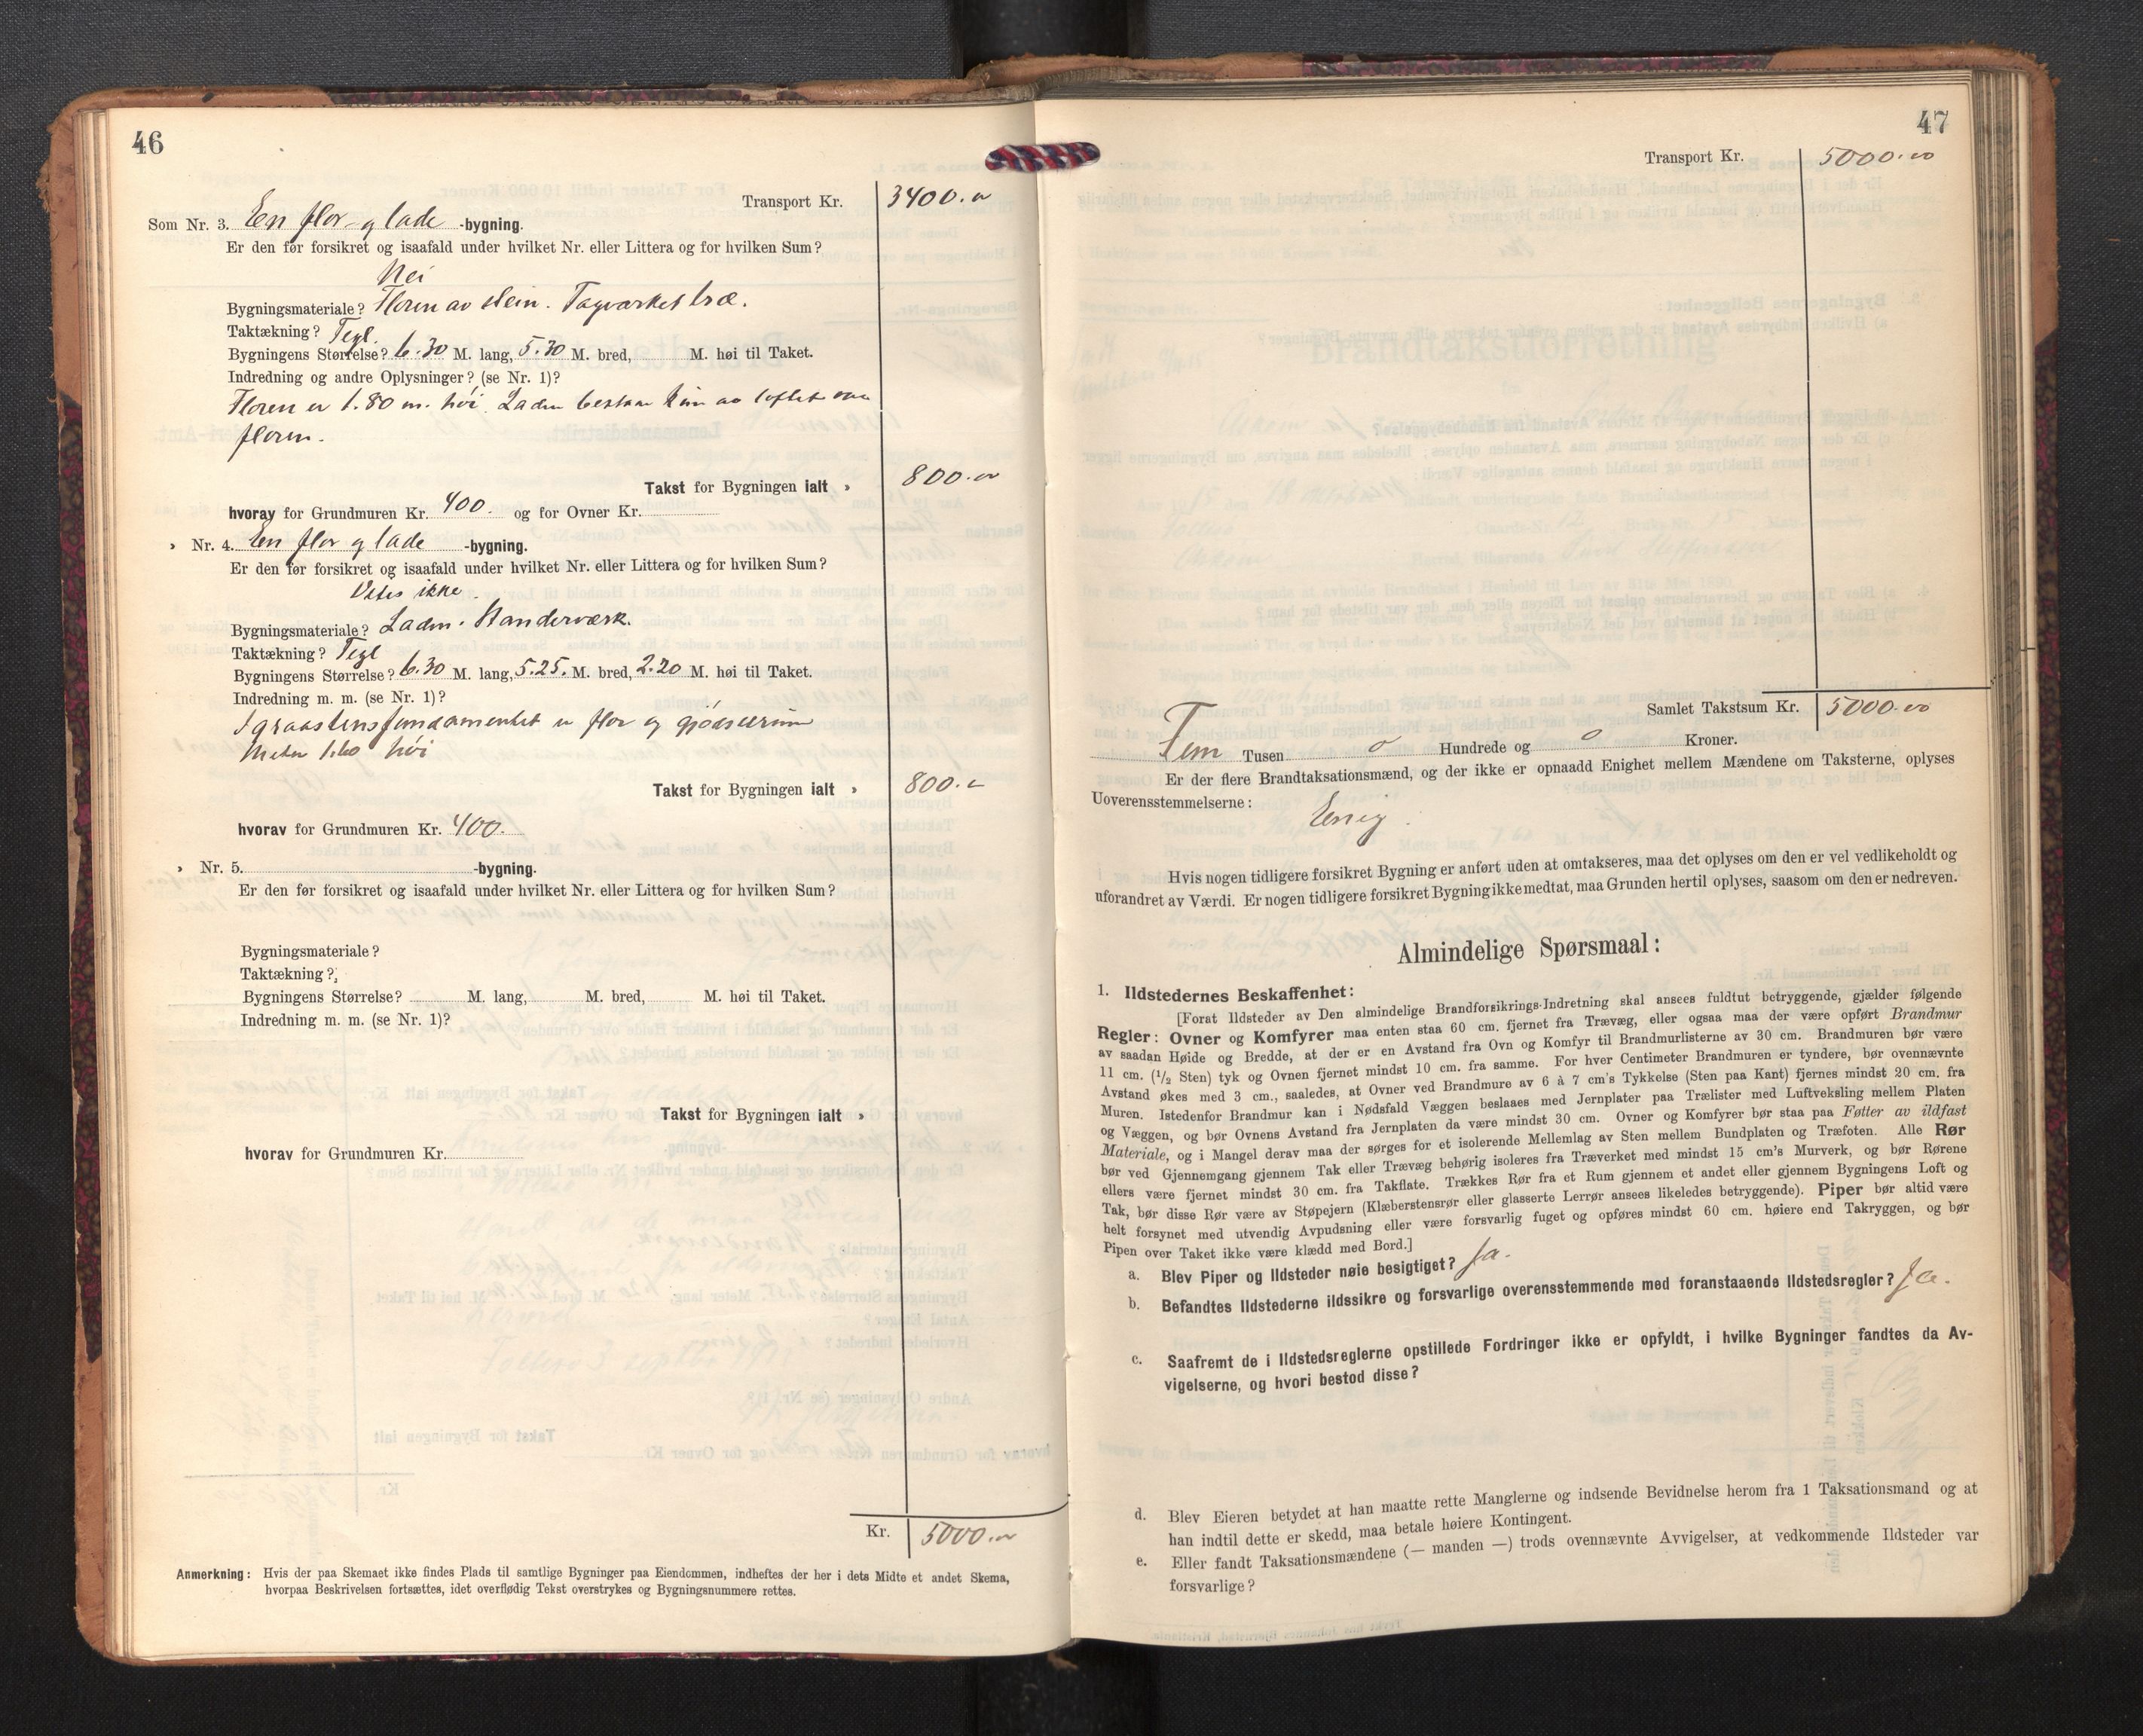 46
Transport Kr. 3400.00
Som Nr. 3. En flor- og lade -bygning.
Er den før forsikret og isaafald under hvilket Nr. eller Littera og for hvilken Sum?
Nei
Bygningsmateriale? Floren av stein. Tagverket træ.
Taktækning? Tegl.
Bygningens Størrelse? 6.30 M. lang, 5.30 M. bred, M. høi til Taket.
Indredning og andre Oplysninger? (se Nr. 1)?
Floren er 1.80 m. høi. Laden bestaar kun av loftet over
floren.
Takst for Bygningen ialt » 800.00
hvorav for Grundmuren Kr. 400 og for Ovner Kr.
» Nr. 4. En flor og lade -bygning.
Er den før forsikret og isaafald under hvilket Nr. eller Littera og for hvilken Sum?
Vites ikke.
Bygningsmateriale? Laden. Standerværk.
Taktækning? Tegl
Bygningens Størrelse? 6.30 M. lang, 5.25. M. bred, 2.20 M. høi til Taket.
Indredning m. m. (se Nr. 1)?
I graastensfundamentet er flor og gjødselrum
Meter 1.60 høi
Takst for Bygningen ialt » 800.00
hvorav for Grundmuren Kr. 400.
» Nr. 5. -bygning.
Er den før forsikret og isaafald under hvilket Nr. eller Littera og for hvilken Sum?
Bygningsmateriale?
Taktækning?
Bygningens Størrelse? M. lang, M. bred, M. høi til Taket.
Indredning m. m. (se Nr. 1)?
Takst for Bygningen ialt »
hvorav for Grundmuren Kr.
Kr. 5000.00
Anmerkning: Hvis der paa Skemaet ikke findes Plads til samtlige Bygninger paa Eiendommen, indheftes der her i dets Midte et andet Skema,
hvorpaa Beskrivelsen fortsættes, idet overflødig Tekst overstrykes og Bygningsnummere rettes.
47
Transport Kr. 5000.00
Samlet Takstsum Kr. 5000.00
Fem Tusen o Hundrede og o Kroner.
Er der flere Brandtaksationsmænd, og der ikke er opnaadd Enighet mellem Mændene om Taksterne, oplyses
Uoverensstemmelserne:
Enig.
Hvis nogen tidligere forsikret Bygning er anført uden at omtakseres, maa det oplyses om den er vel vedlikeholdt og
uforandret av Værdi. Er nogen tidligere forsikret Bygning ikke medtat, maa Grunden hertil oplyses, saasom om den er nedreven.
Almindelige Spørsmaal:
1. Ildstedernes Beskaffenhet:
[Forat Ildsteder av Den almindelige Brandforsikrings-Indretning skal ansees fuldtut betryggende, gjælder følgende
Regler: Ovner og Komfyrer maa enten staa 60 cm. fjernet fra Trævæg, eller ogsaa maa der være opført Brandmur
av saadan Høide og Bredde, at der er en Avstand fra Ovn og Komfyr til Brandmurlisterne av 30 cm. Brandmuren bør være
11 cm. (1/2 Sten) tyk og Ovnen fjernet mindst 10 cm. fra samme. For hver Centimeter Brandmuren er tyndere, bør ovennævnte
Avstand økes med 3 cm., saaledes, at Ovner ved Brandmure av 6 à 7 cm's Tykkelse (Sten paa Kant) fjernes mindst 20 cm. fra
Muren. Istedenfor Brandmur kan i Nødsfald Væggen beslaaes med Jernplater paa Trælister med Luftveksling mellem Platen
og Væggen, og bør Ovnens Avstand fra Jernplaten da være mindst 30 cm. Ovner og Komfyrer bør staa paa Føtter av ildfast
Materiale, og i Mangel derav maa der sørges for et isolerende Mellemlag av Sten mellem Bundplaten og Træfoten. Alle Rør
bør ved Gjennemgang gjennem Tak eller Trævæg behørig isoleres fra Træverket med mindst 15 cm's Murverk, og bør Rørene
ellers være fjernet mindst 30 cm. fra Takflate. Trækkes Rør fra et Rum gjennem et andet eller gjennem Bygningens Loft og
Tak, bør disse Rør være av Støpejern (Klæberstensrør eller glasserte Lerrør ansees likeledes betryggende). Piper bør altid være
helt forsynet med utvendig Avpudsning eller være forsvarlig fuget og opføres mindst 60 cm. høiere end Takryggen, og bør
Pipen over Taket ikke være klædd med Bord.]
a. Blev Piper og Ildsteder nøie besigtiget? Ja.
b. Befandtes Ildstederne ildssikre og forsvarlige overensstemmende med foranstaaende Ildstedsregler? Ja.
c. Saafremt de i Ildstedsreglerne opstillede Fordringer ikke er opfyldt, i hvilke Bygninger fandtes da Av-
vigelserne, og hvori bestod disse?
d. Blev Eieren betydet at han maatte rette Manglerne og indsende Bevidnelse herom fra 1 Taksationsmand og at
han indtil dette er skedd, maa betale høiere Kontingent.
e. Eller fandt Taksationsmændene (— manden —) trods ovennævnte Avvigelser, at vedkommende Ildsteder var
forsvarlige?